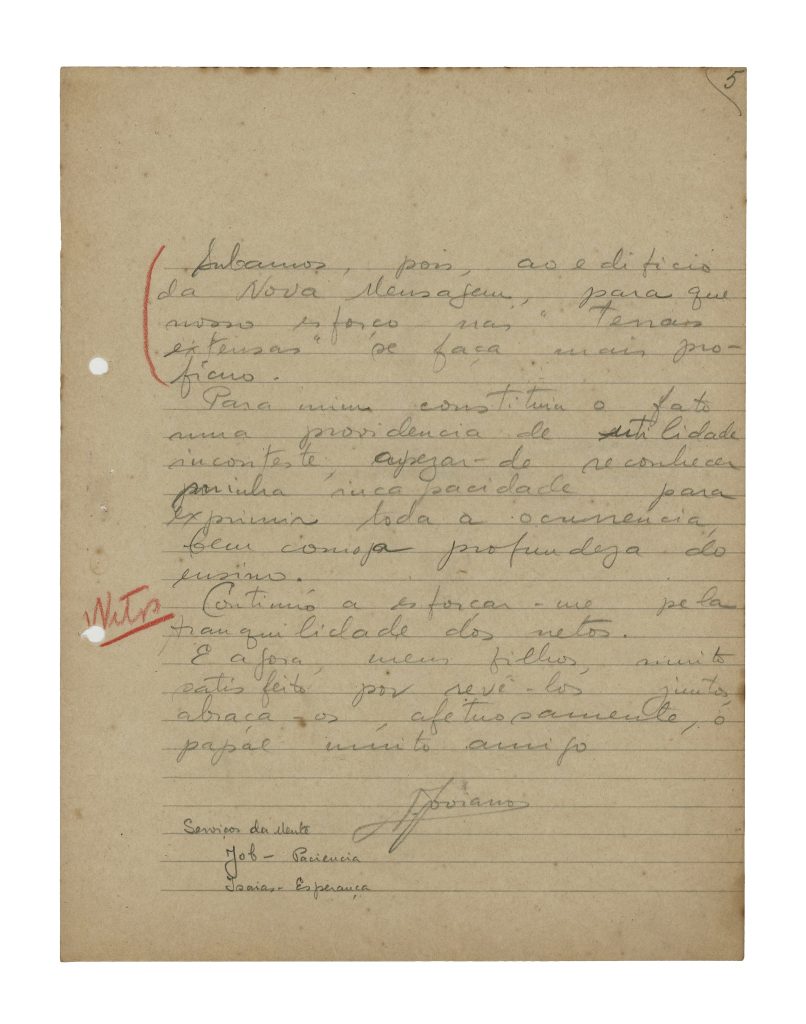 5
Subamos, pois, ao edificio
da Nova Mensagem, para que
nosso esforço nas "Terras
extensas" se faça mais pro-
fícuo.
Para mim constituiu o fato
uma providencia de utilidade
inconteste, apezar-de reconhecer
minha incapacidade para
exprimir toda a ocurrencia,
bem como a profundeza do
ensino.
Continúo a esforçar-me pela
Netos
tranquilidade dos netos.
E agora, meus filhos, muito
satisfeito por revê-los juntos,
abraça-os, afetuosamente, o
papae muito amigo
Joviano
Serviços da Mente
Job - Paciencia
Isaias - Esperança